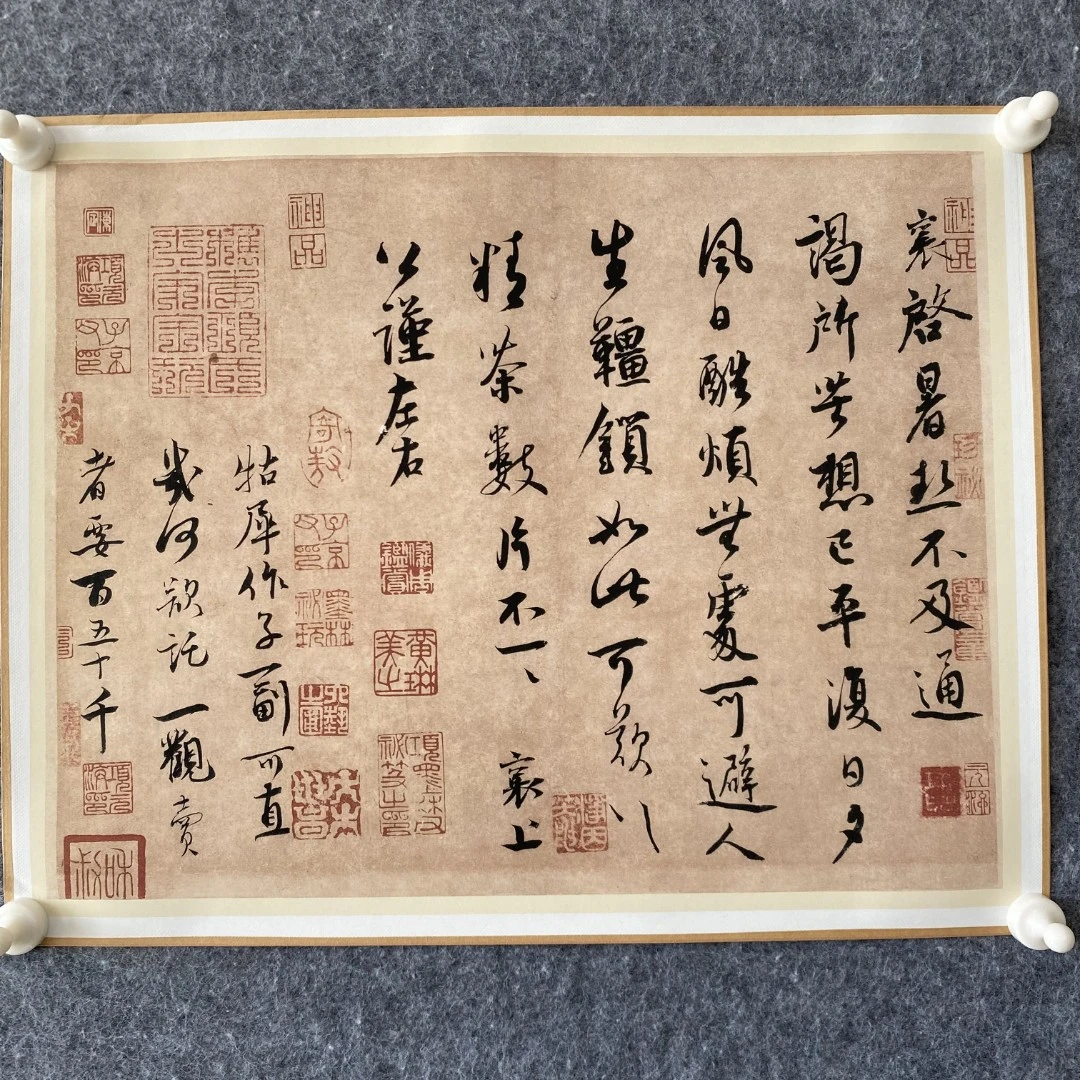 襄啓暑熱不及通
謁所苦想已平復日夕
風日酷煩無處可避人
生韁鎖如此可歎以
精茶數片不一、襄上
公謹左右
牯犀作子一副可直
幾何欲託一觀賣
者要百五十千
神品
神品
子京
黃琳
美之